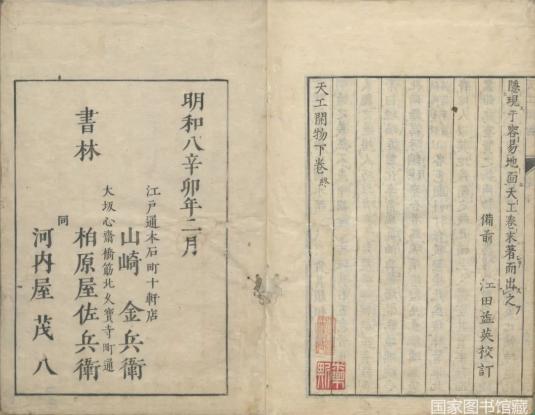 隱現于容易地面天工卷末著而出之
備前 江田益英校訂
天工開物下卷終
明和八辛卯年二月
書林
江戸通本石町十軒店
山崎金兵衛
大坂心齋橋筋北久寶寺町通
柏原屋佐兵衛
同
河内屋茂八
国家图书馆藏